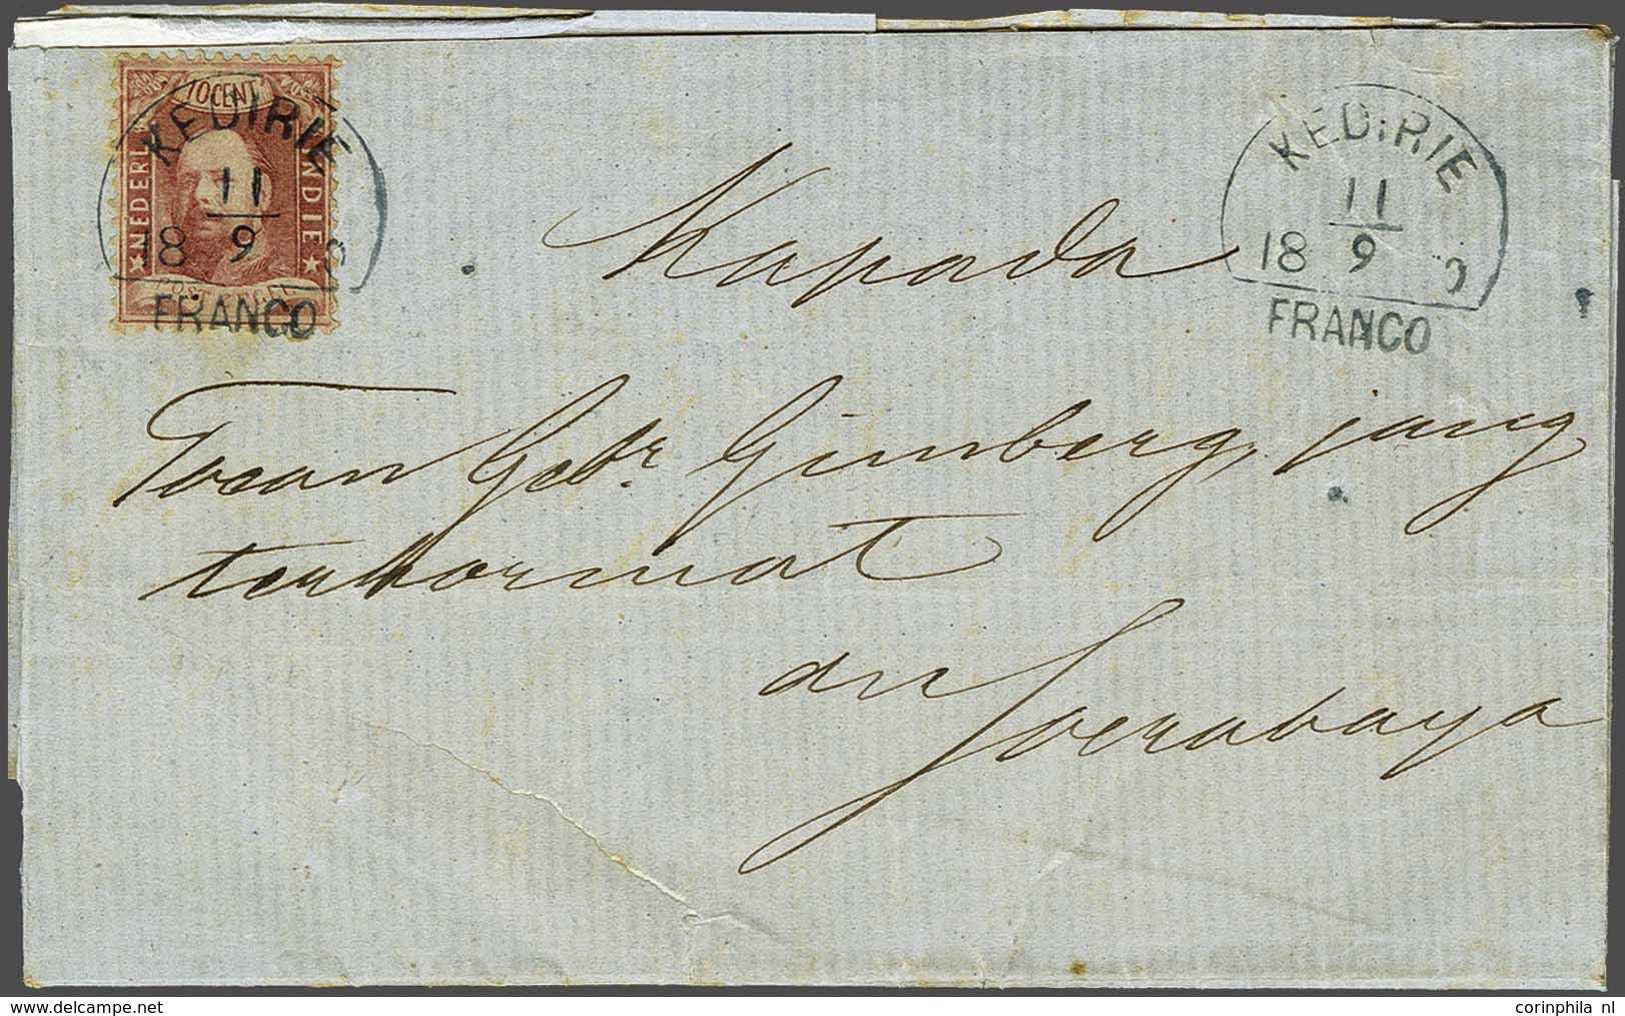 10 CENT
NEDERL. INDIE
POSTZEGEL
KEDIRIE
11
18 9
FRANCO
KEDIRIE
11
18 9
FRANCO
Kapada
Toean Gebr. Gimberg, jang
terhormat
di
Soerabaya
corinphila nl